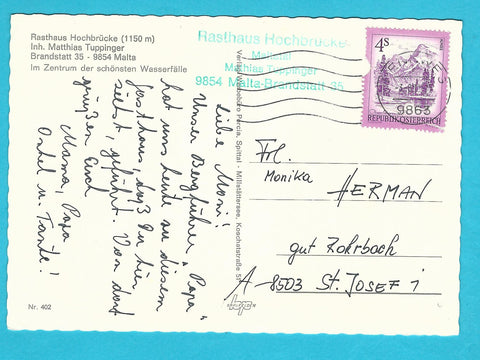 Rasthaus Hochbrücke (1150 m)
Inh. Matthias Tuppinger
Brandstatt 35 - 9854 Malta
Im Zentrum der schönsten Wasserfälle
Rasthaus Hochbrücke
Maltatal
Mathias Tuppinger
9854 Malta-Brandstatt 35
4S
REPUBLIK ÖSTERREICH
9863
Liebe Moni!
Unser Bergführer "Papa"
hat uns heute zu diesem
Gasthaus, daß Du hier
siehst, geführt. Von dort
grüßen Euch
Mama, Papa
Onkel u. Tante!
Frl.
Monika HERMAN
gut Rohrbach
A-8503 St. JOSEF i
Nr. 402